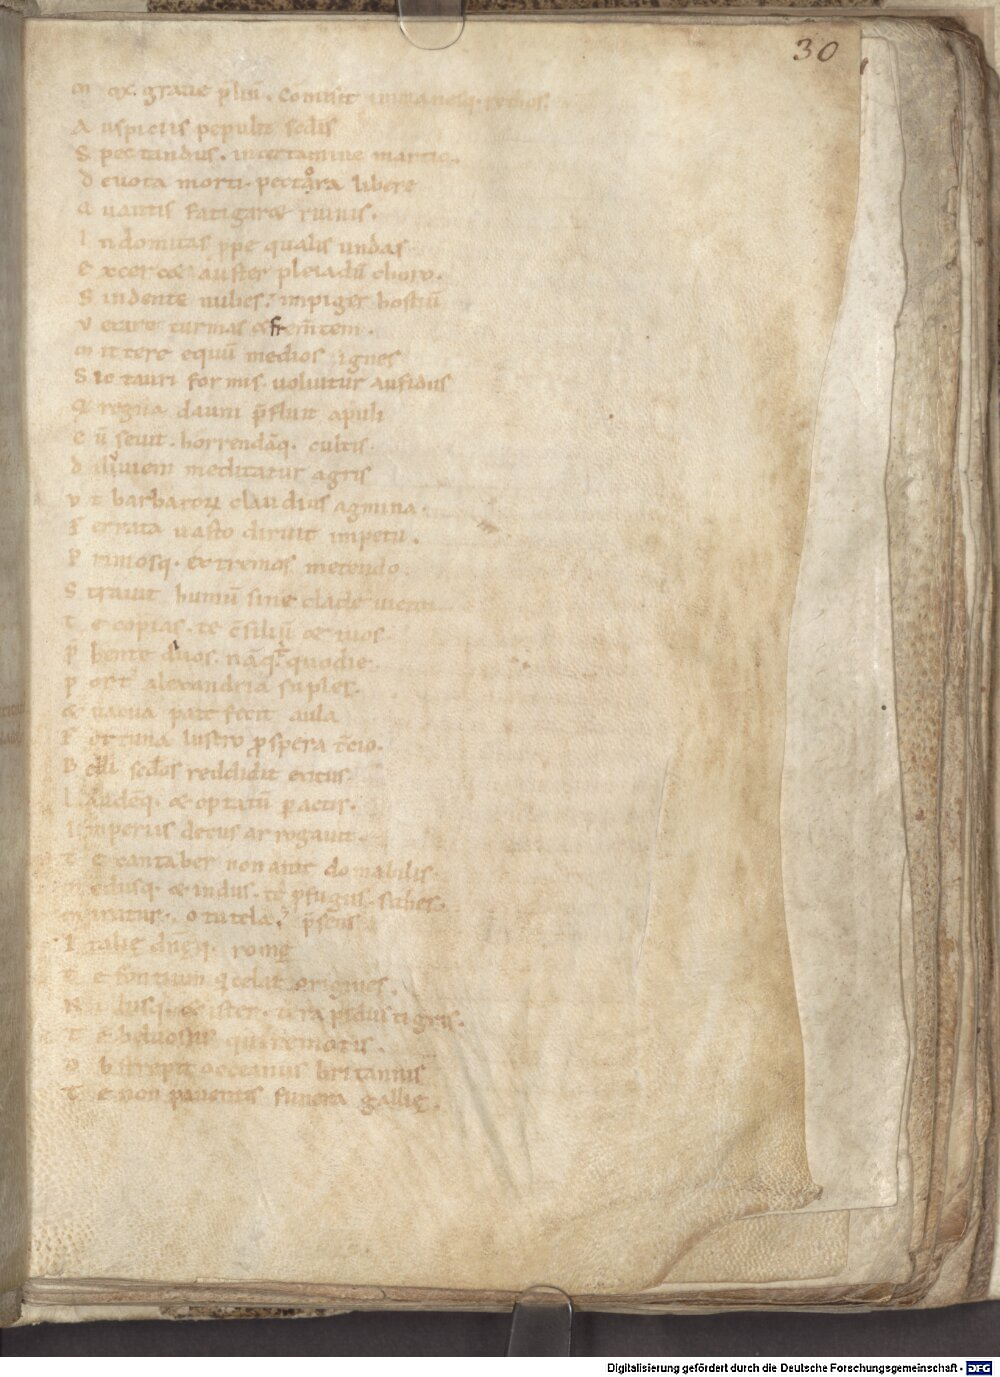 30
M ox. graue pliū. Cōmisit immanesq. rethos.
A uspiciis pepulit sedis
S pectandus. in certamine martio.
D euota morti. pectora libere
Q uantis fatigaret ruinis.
I ndomitas ppe qualis undas
E xercet auster pleiadū choro.
S indente nubes. impiger hostiū
V exare turmas & frem̄tem.
M ittere equū medios ignes
S ic tauri formis uoluitur aufidus
Q regna dauni p̄fluit apuli
C ū seuit. horrendāq. cultis.
D iluuiem meditatur agris
V t barbaroꝝ claudius agmina.
F errata uasto diruit impetu.
P rimosq. & extremos metendo.
S trauit humū sine clade uictor
T e copias. te c̄siliū & tuos.
P bente diuos. nāq. quo die.
P ort alexandria suplex.
& uacua patefecit aula
F ortuna lustro p̄spera t̄cio.
B elli secdos reddidit exitus.
L audēq. & optatū pactis.
I mperiis decus arrogauit.
T e cantaber non ante domabilis.
M edusq. & indus. te p̄fugus scithes.
M iratur. o tutela p̄sens
I talię dn̄ęq. romę
T e fontium q celat origines.
N ilusq. & ister. te rapidus tigris.
T e beluosus qui remotis.
O bstrepit occeanus britannis
T e non pauentis funera gallię.
Digitalisierung gefördert durch die Deutsche Forschungsgemeinschaft - DFG